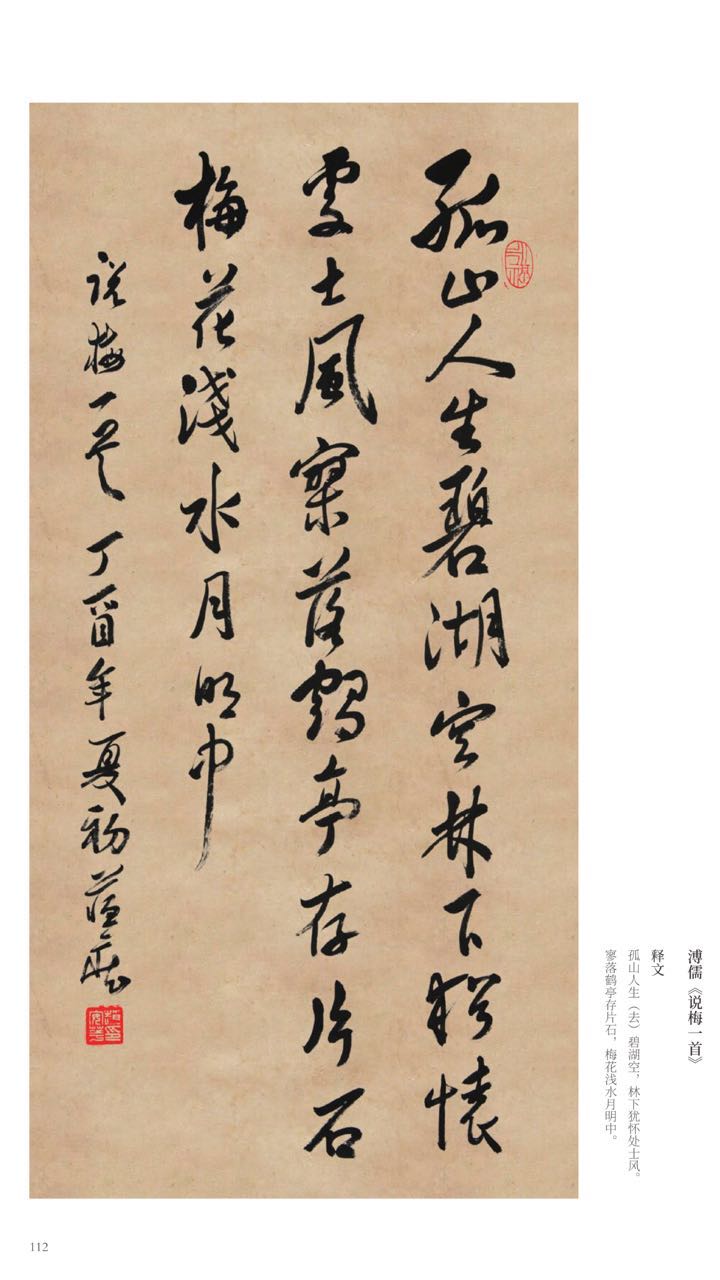 孤山人生碧湖空林下猶懷
處士風寥落鶴亭存片石
梅花淺水月明中
說梅一首 丁酉年夏初
溥儒《说梅一首》
释文
孤山人生（去）碧湖空，林下犹怀处士风。
寥落鹤亭存片石，梅花浅水月明中。
112